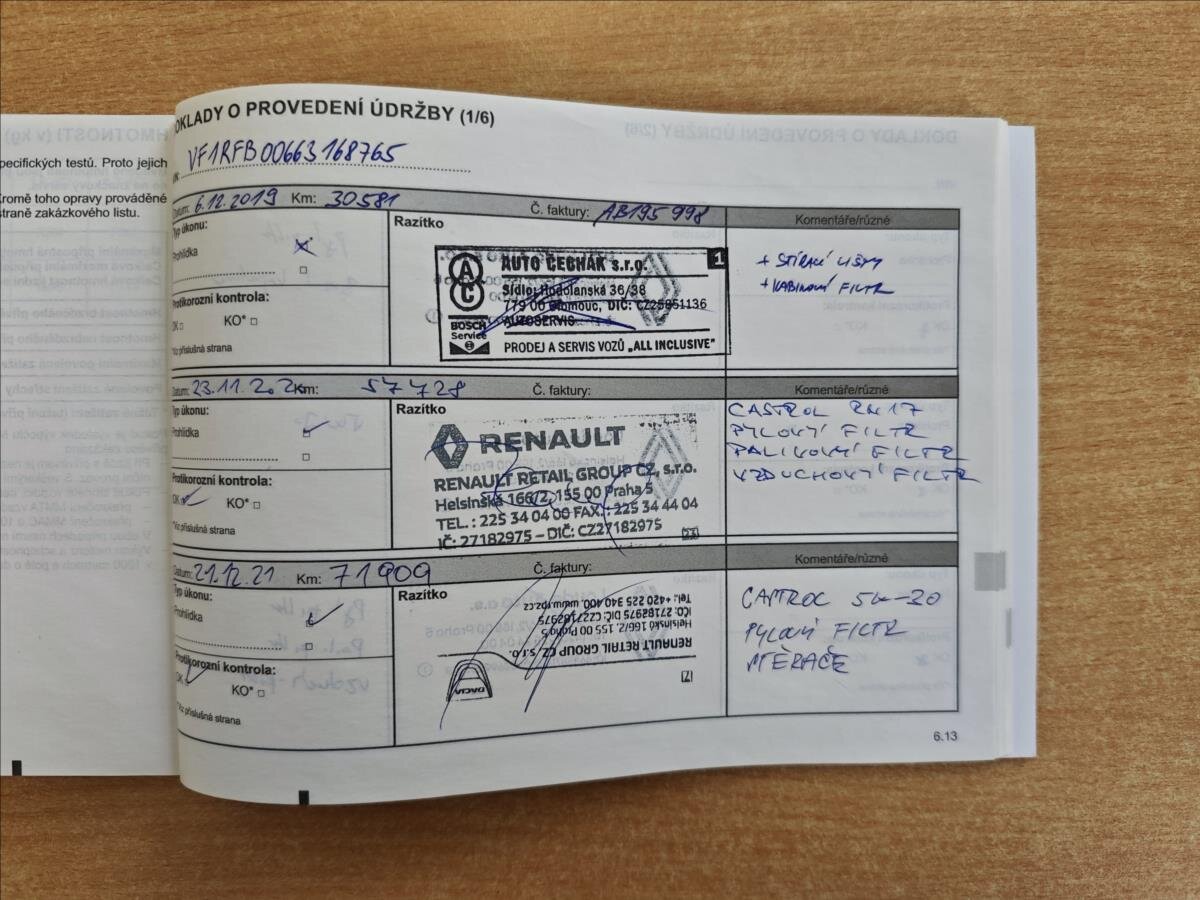 DOKLADY O PROVEDENÍ ÚDRŽBY (1/6)
VF1RFB00663168765
pecifických testů. Proto jejich
Kromě toho opravy prováděné
straně zakázkového listu.
Datum: 6.12.2019 Km: 30581 Č. faktury: AB195998 Komentáře/různé
Typ úkonu:
Prohlídka
Protikorozní kontrola:
OK KO*
*Viz příslušná strana
Razítko
AUTO ČECHÁK s.r.o. 1
Sídlo: Hodolanská 36/38
779 00 Olomouc, DIČ: CZ25851136
AUTOSERVIS
BOSCH
Service
PRODEJ A SERVIS VOZŮ „ALL INCLUSIVE"
+ STÍRACÍ LIŠTY
+ KABINOVÝ FILTR
Datum: 23.11.202 Km: 57728 Č. faktury: Komentáře/různé
Typ úkonu:
Prohlídka
Protikorozní kontrola:
OK KO*
*Viz příslušná strana
Razítko
RENAULT
RENAULT RETAIL GROUP CZ, s.r.o.
Helsinská 166/2, 155 00 Praha 5
TEL.: 225 34 04 00 FAX.: 225 34 44 04
IČ: 27182975 – DIČ: CZ27182975
23
CASTROL RN17
PYLOVÝ FILTR
PALIVOVÝ FILTR
VZDUCHOVÝ FILTR
Datum: 21.12.21 Km: 71909 Č. faktury: Komentáře/různé
Typ úkonu:
Prohlídka
Protikorozní kontrola:
OK KO*
*Viz příslušná strana
Razítko
DACIA
RENAULT RETAIL GROUP CZ s.r.o.
Helsinská 166/2, 155 00 Praha 5
IČO: 27182975 DIČ: CZ27182975
Tel.: +420 225 340 400, www.rpz.cz
CASTROL 5W-30
PYLOVÝ FILTR
STĚRAČE
6.13